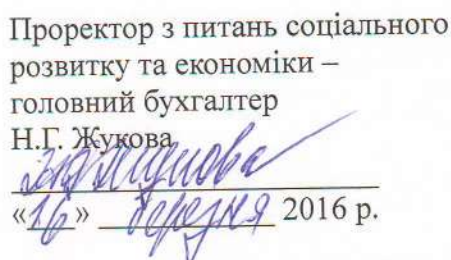 Проректор з питань соціального
розвитку та економіки –
головний бухгалтер
Н.Г. Жукова
«16» березня 2016 р.